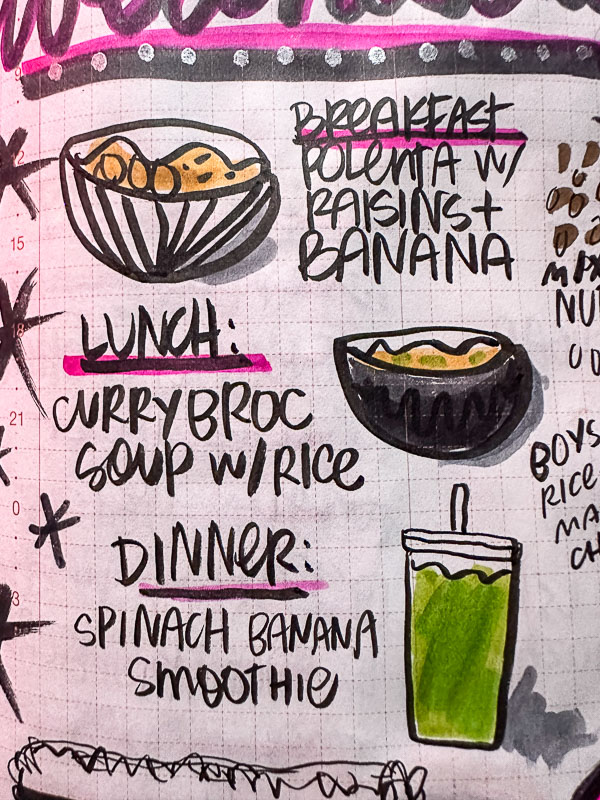 BREAKFAST
POLENTA W/
RAISINS +
BANANA
NU
LUNCH:
CURRY BROC
SOUP W/RICE
BOYS
RICE
MA
CH
DINNER:
SPINACH BANANA
SMOOTHIE
9
15
21
0
3